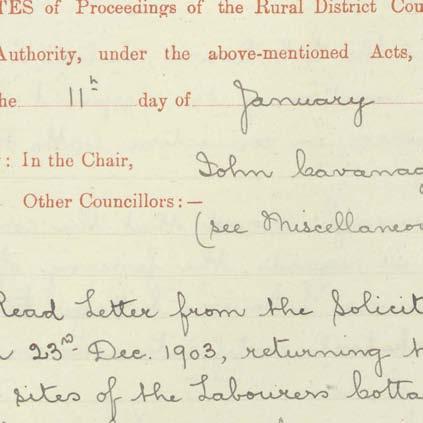 TES of Proceedings of the Rural District Cou
Authority, under the above-mentioned Acts,
he 11h day of January
: In the Chair, John Cavanag
Other Councillors:—
(see Miscellaneou
Read Letter from the Solicit
23rd Dec. 1903, returning t
sites of the Labourers Cotta